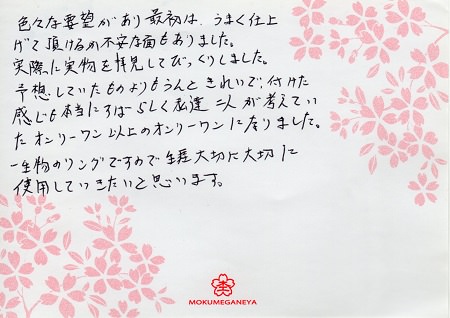 色々な要望があり最初は、うまく仕上
げて頂けるか不安な面もありました。
実際に実物を拝見してびっくりしました。
予想していたものよりもうんときれいで、付けた
感じも本当にすばらしく私達二人が考えてい
たオンリーワン以上のオンリーワンになりました。
一生物のリングですので生涯大切に大切に
使用していきたいと思います。
MOKUMEGANEYA